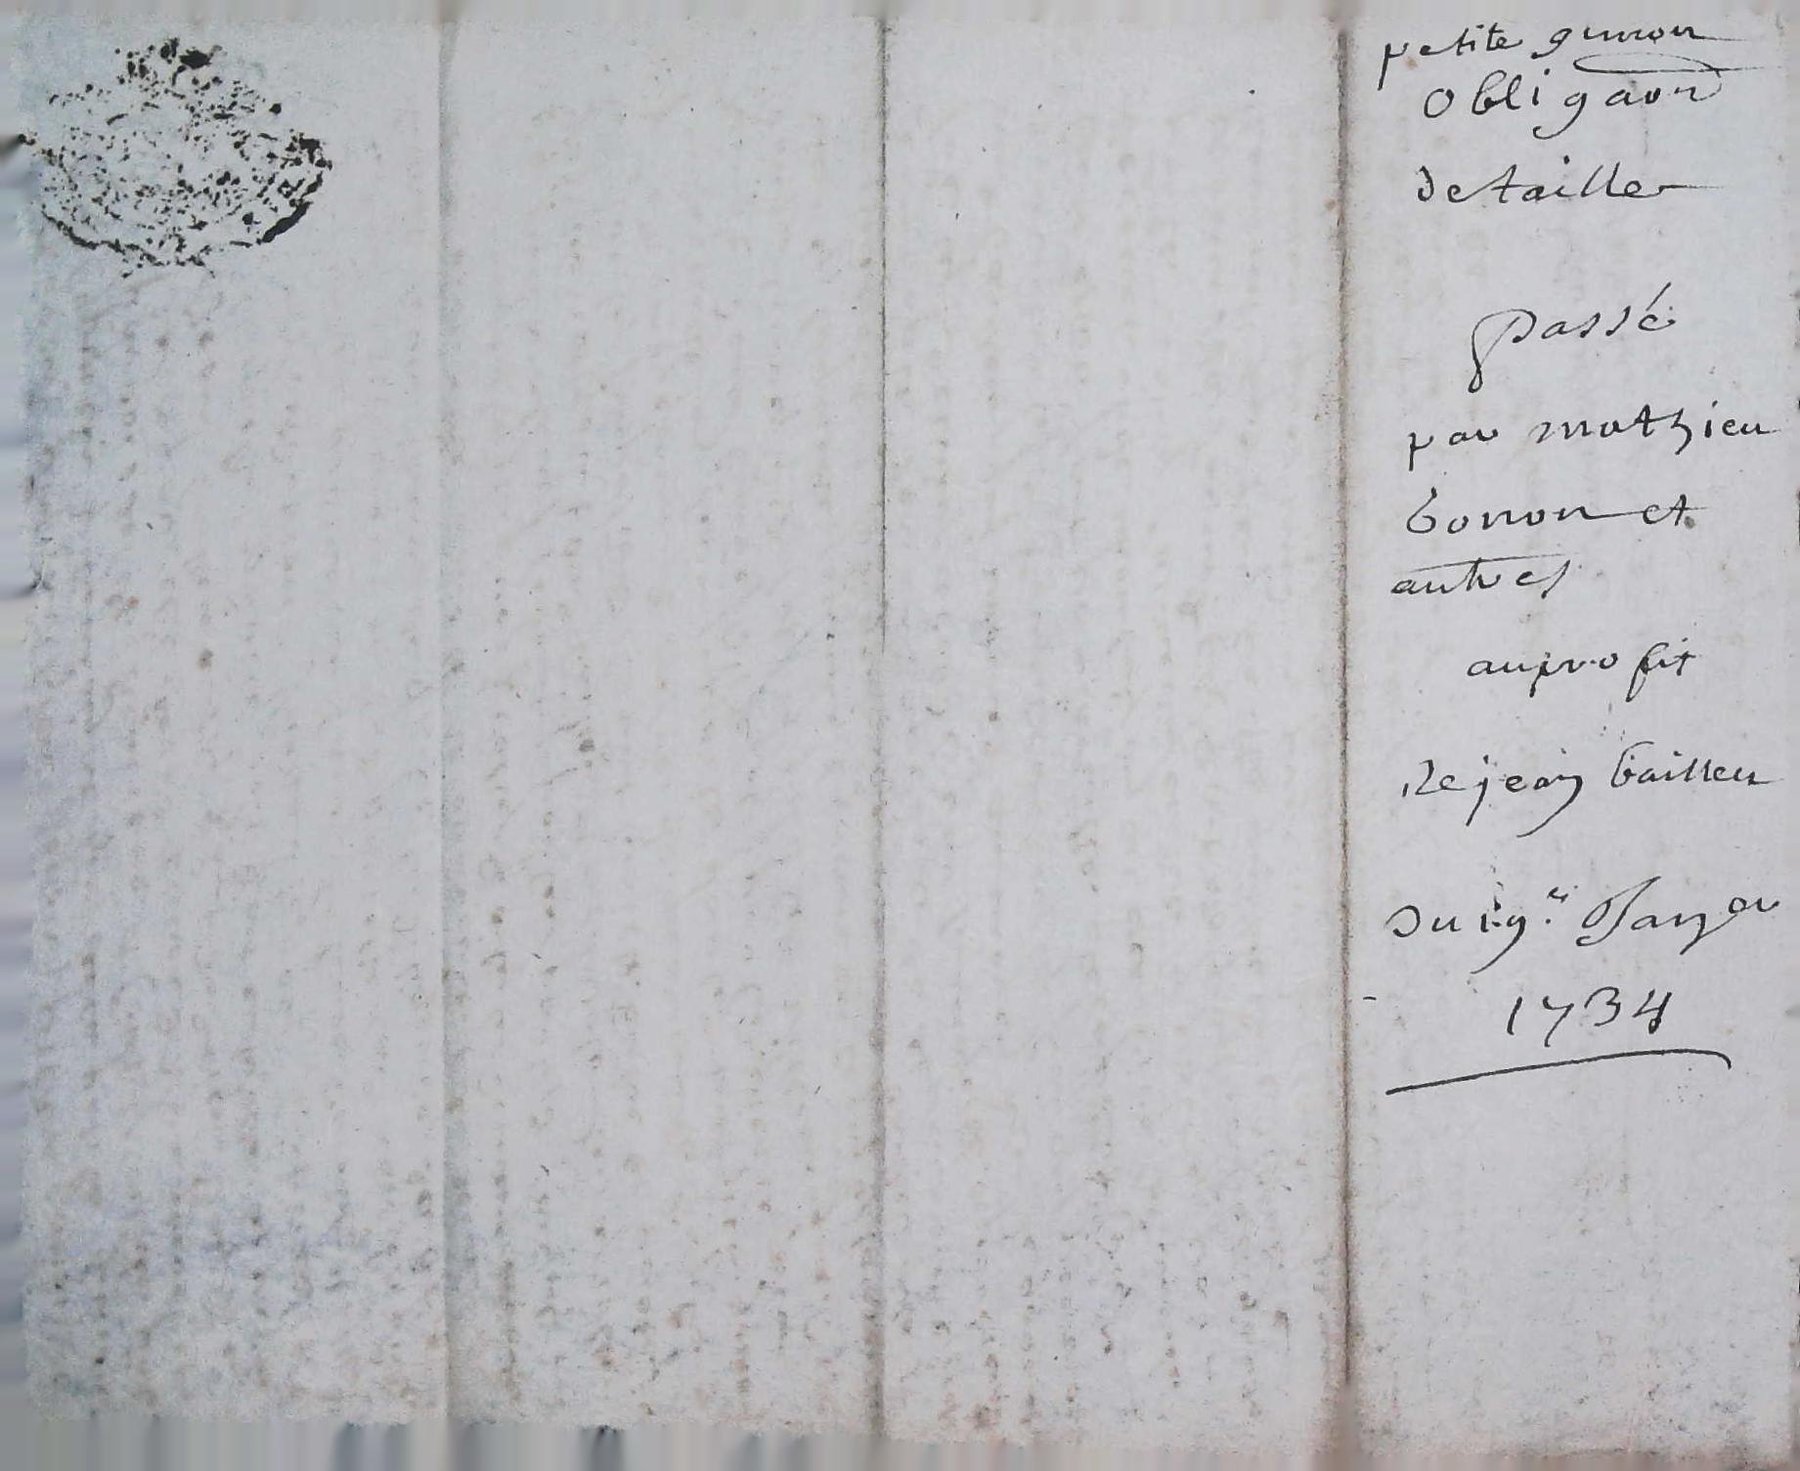 petite gunon
obligaõn
detailler
passé
par mathieu
bonon et
autres
auprofit
de jean bailleu
Du 19.e Janver
1734